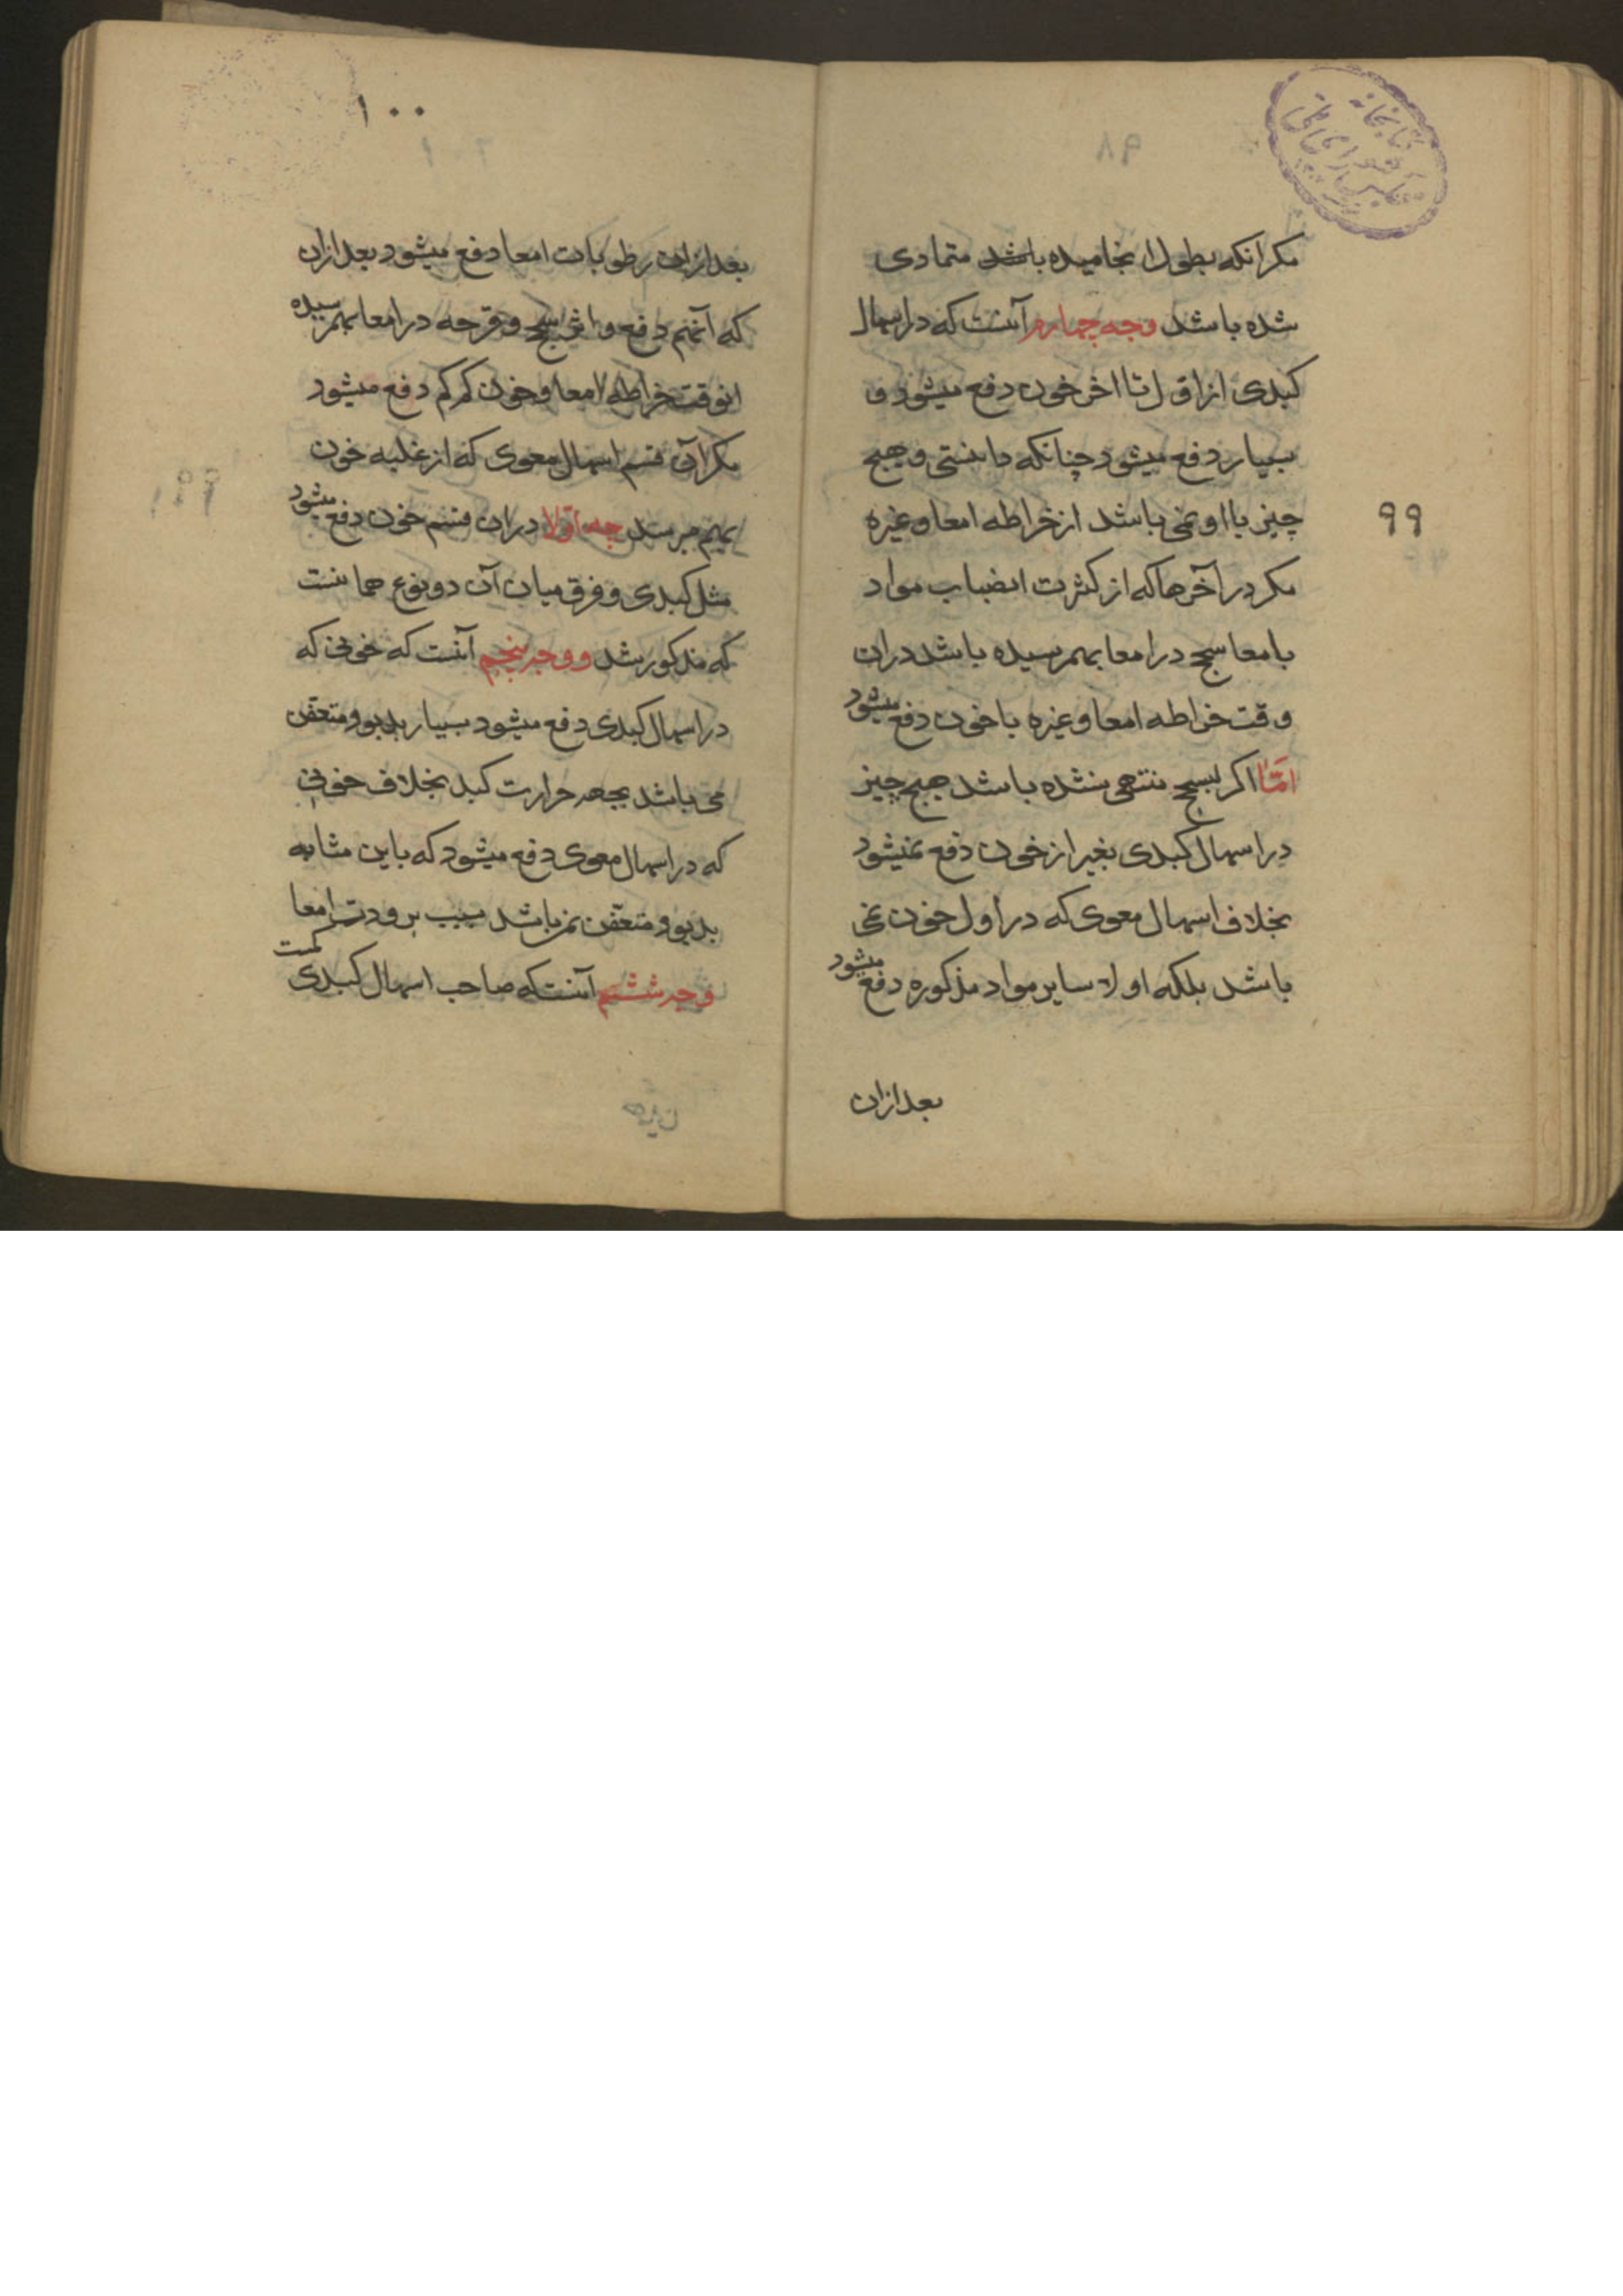 مکر انکه بطول انجامیده باشد متمادی
شده باشد وجه چهارم آنست که در اسهال
کبدی از اول تا اخر خون دفع میشود و
بسیار دفع میشود چنانکه دانستی و هیچ
چیز با او نمی باشد از خراطه امعا و غیره
مکر در آخرها که از کثرت انصباب مواد
بامعا سحج در امعا بهمرسیده باشد دران
وقت خراطه امعا و غیره با خون دفع میشود
امّا اکر بسحج منتهی نشده باشد هیچ چیز
در اسهال کبدی بغیر از خون دفع نمیشود
بخلاف اسهال معوی که در اول خون نمی
باشد بلکه اولا سایر مواد مذکوره دفع میشود
بعد ازان
۹۹
۱۰۰
بعد ازان رطوبات امعا دفع میشود بعد ازان
که آنهم دفع و اثر سحج و قرحه در امعا بهمرسیده
انوقت خراطه امعا و خون کم کم دفع میشود
مکر آن قسم اسهال معوی که از غلبه خون
بهم میرسد چه اولا دران قسم خون دفع میشود
مثل کبدی و فرق میان آن دو نوع همانست
که مذکور شد و وجه پنجم آنست که خونی که
در اسهال کبدی دفع میشود بسیار بدبو و متعفن
می باشد بجهه حرارت کبد بخلاف خونی
که در اسهال معوی دفع میشود که باین مثابه
بدبو و متعفن نمیباشد بسبب برودت امعا
وجه ششم آنست که صاحب اسهال کبدی